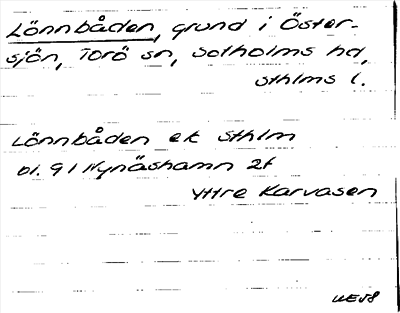 Lönnbåden, grund i Öster-
sjön, Torö sn, Sotholms hd,
sthlms l.
Lönnbåden ek Sthlm
bl. 91 Nynäshamn 2f
Yttre Karvasen